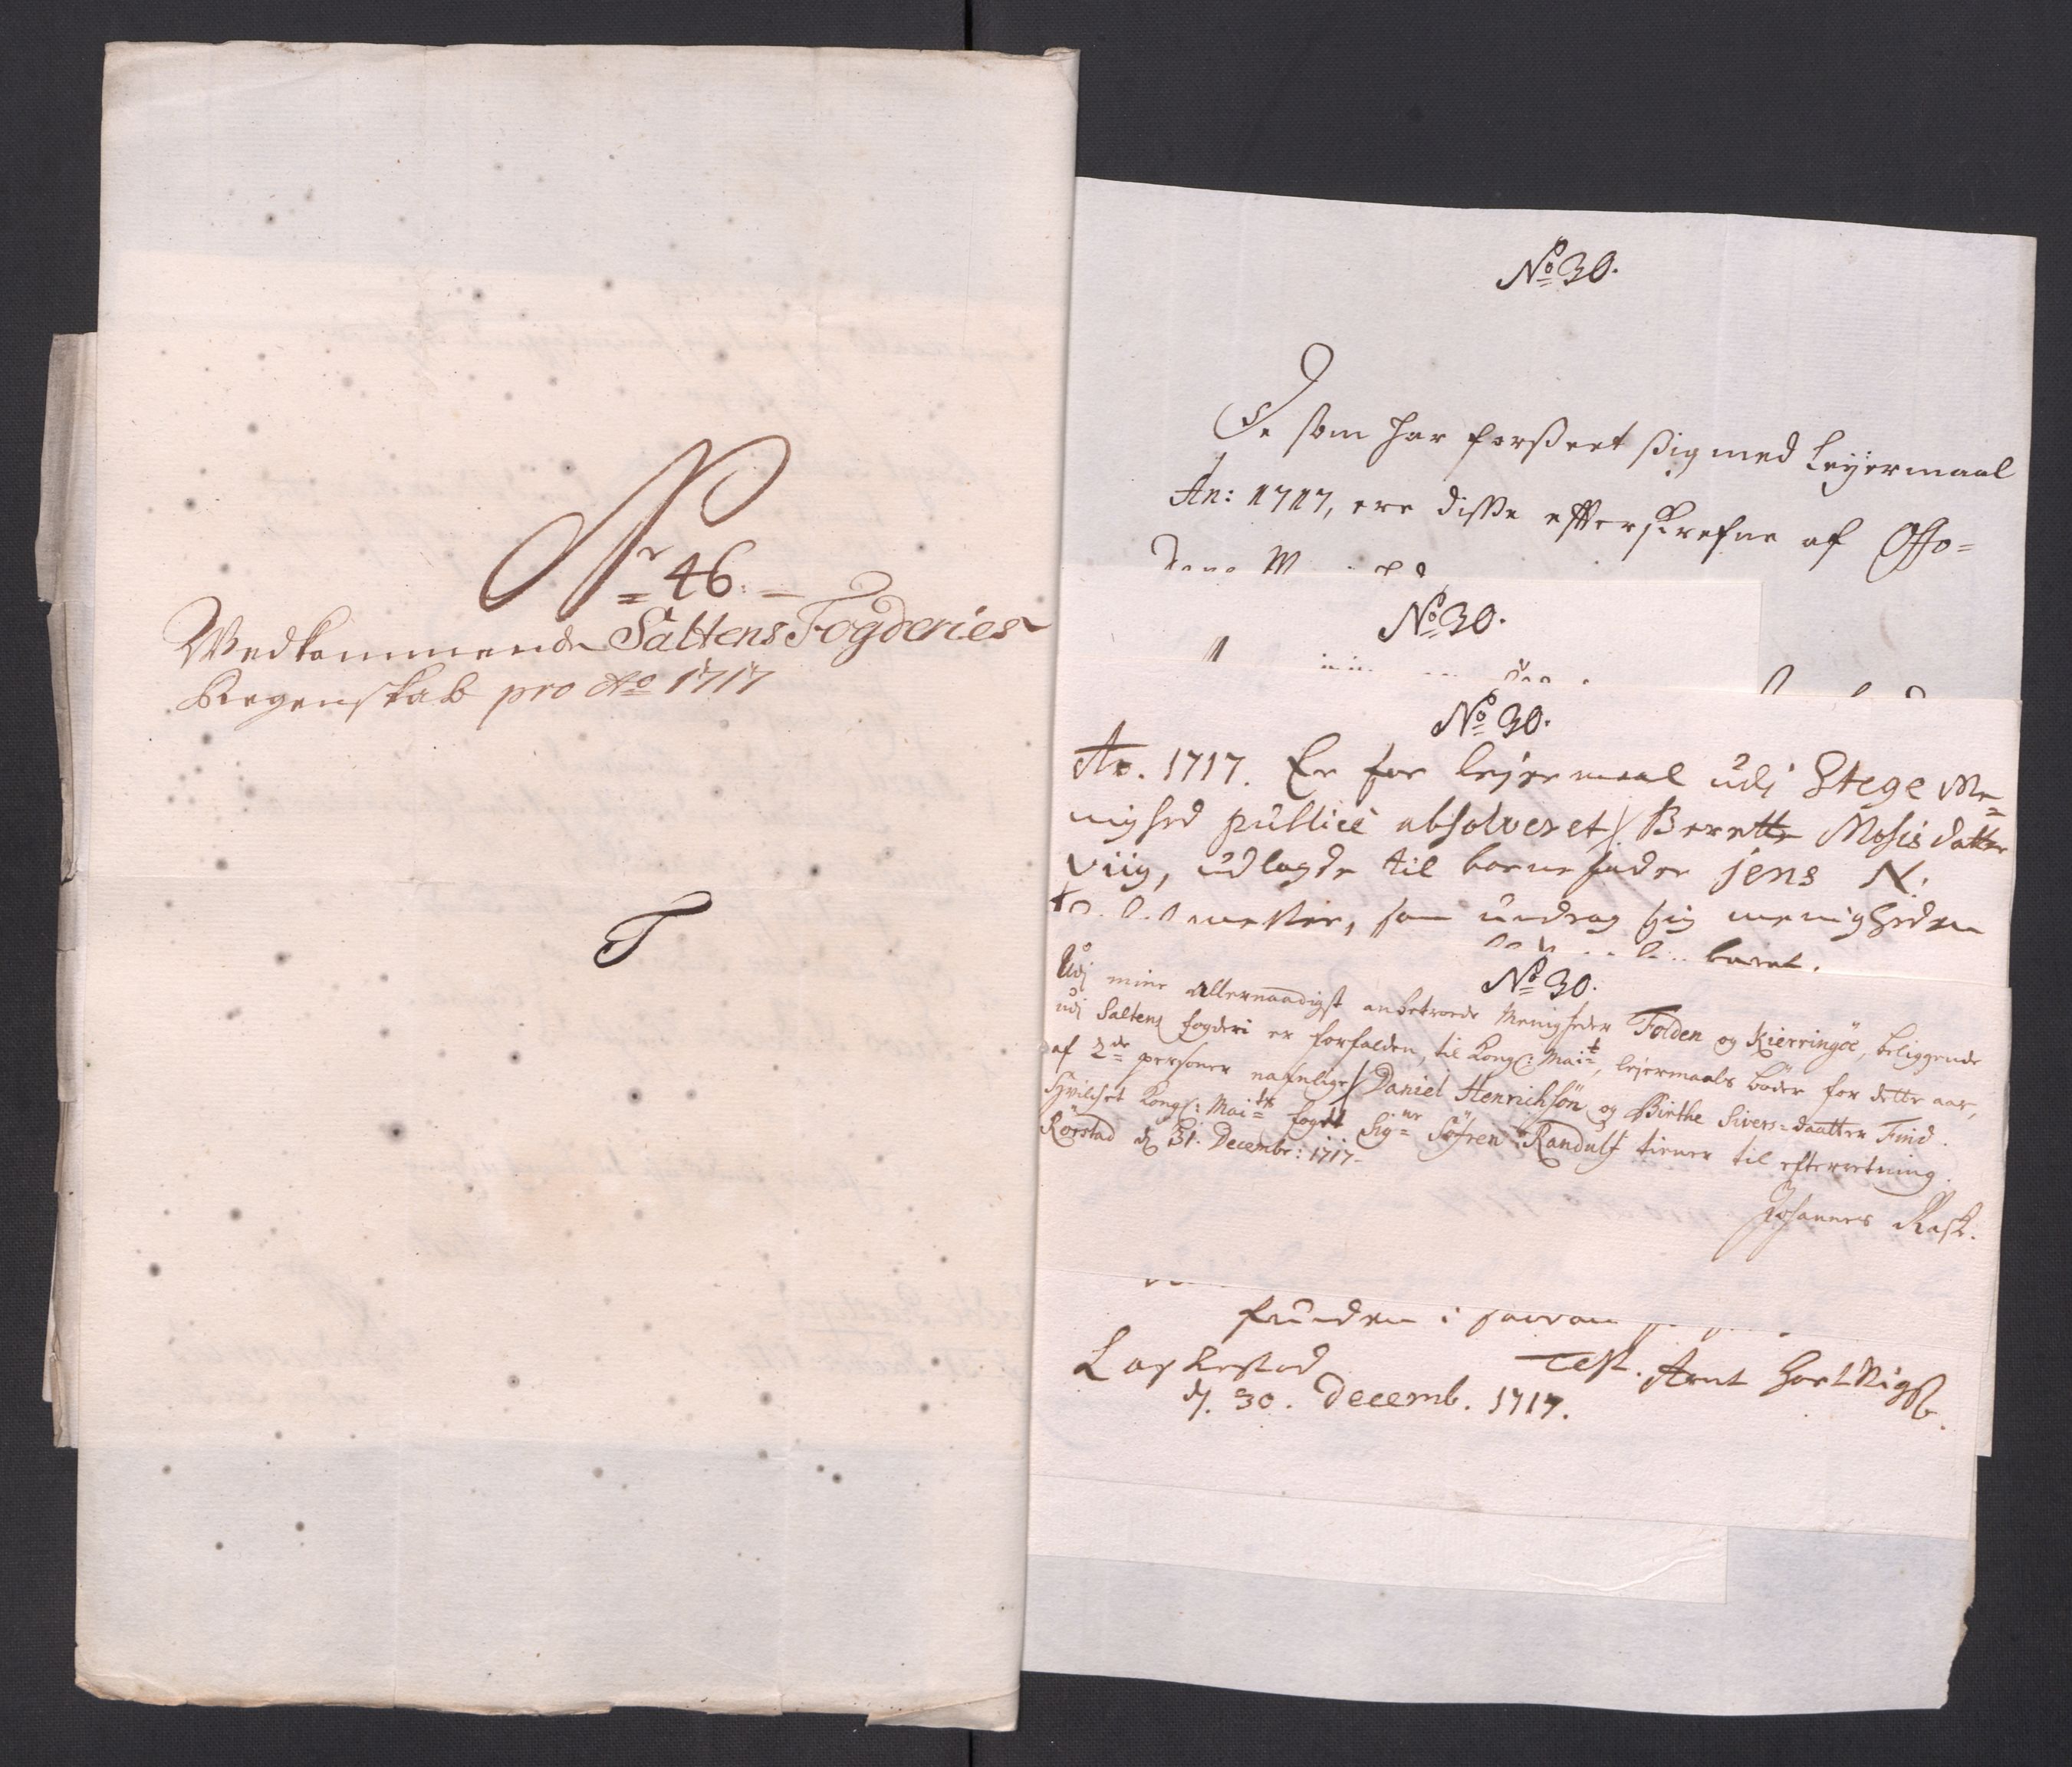 Nr 46.
Wedkommende Saltens Fogderies
Regenskab pro Ao 1717
T
No 30.
De som har forsseet sig med Leyermaal
An: 1717, ere disse efterskrefne af Offo=
No 30.
No 30.
Ao. 1717. Er for lejermaal udj Stege Me=
nighed publicè absolveret / Berette Mosis datter
Viig, udlagde til barnefader Jens N.
som undrog sig menigheden
No 30.
Udj mine allernaadigst anbetroede Menigheder Folden og Kierringöe, beliggende
udj Saltens fogderi er forfalden, til Kongl: Mait, lejermaals böder for dette aar,
af 2de personer nafnlige / Daniel Henrichsön og Birthe Sivers=daatter Find.
Hvilchet Kongl: Maits foget Signr Söfren Randulf tiener til efterretning.
Rörstad d 31. Decembr: 1717.
Johannes Rask.
funden i
Test. Arnt Hartvigss.
d. 30. Decemb. 1717.